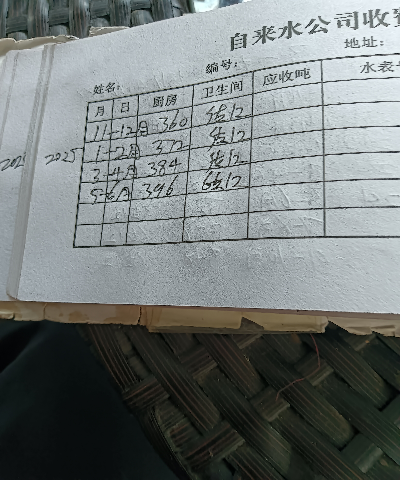 自来水公司收
编号: 地址:
姓名:
月 日 厨房 卫生间 应收吨 水表
11-12月 360 估12
2025 1-2月 372 估12
3-4月 384 估12
5-6月 396 估12